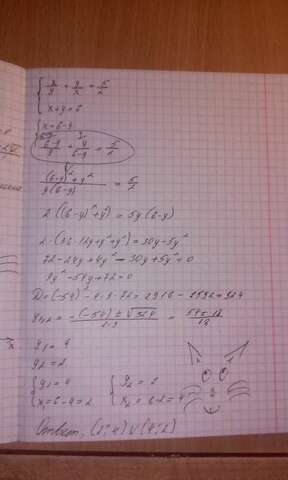 x/y + y/x = 5/2
x+y=6
x=6-y
(6-y)/y + y/(6-y) = 5/2
((6-y)²+y²)/(y(6-y)) = 5/2
2((6-y)²+y²) = 5y(6-y)
2·(36-12y+y²+y²) = 30y-5y²
72-24y+4y²-30y+5y²=0
9y²-54y+72=0
D=(-54)²-4·9·72=2916-2592=324
y₁,₂ = (-(-54)±√324)/(2·9) = (54±18)/18
y₁=4
y₂=2
y₁=4 y₂=2
x=6-4=2 x₂=6-2=4
Ответ: (2;4)∪(4;2)